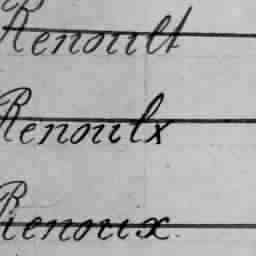 Renoult
Renoulx
Renoux